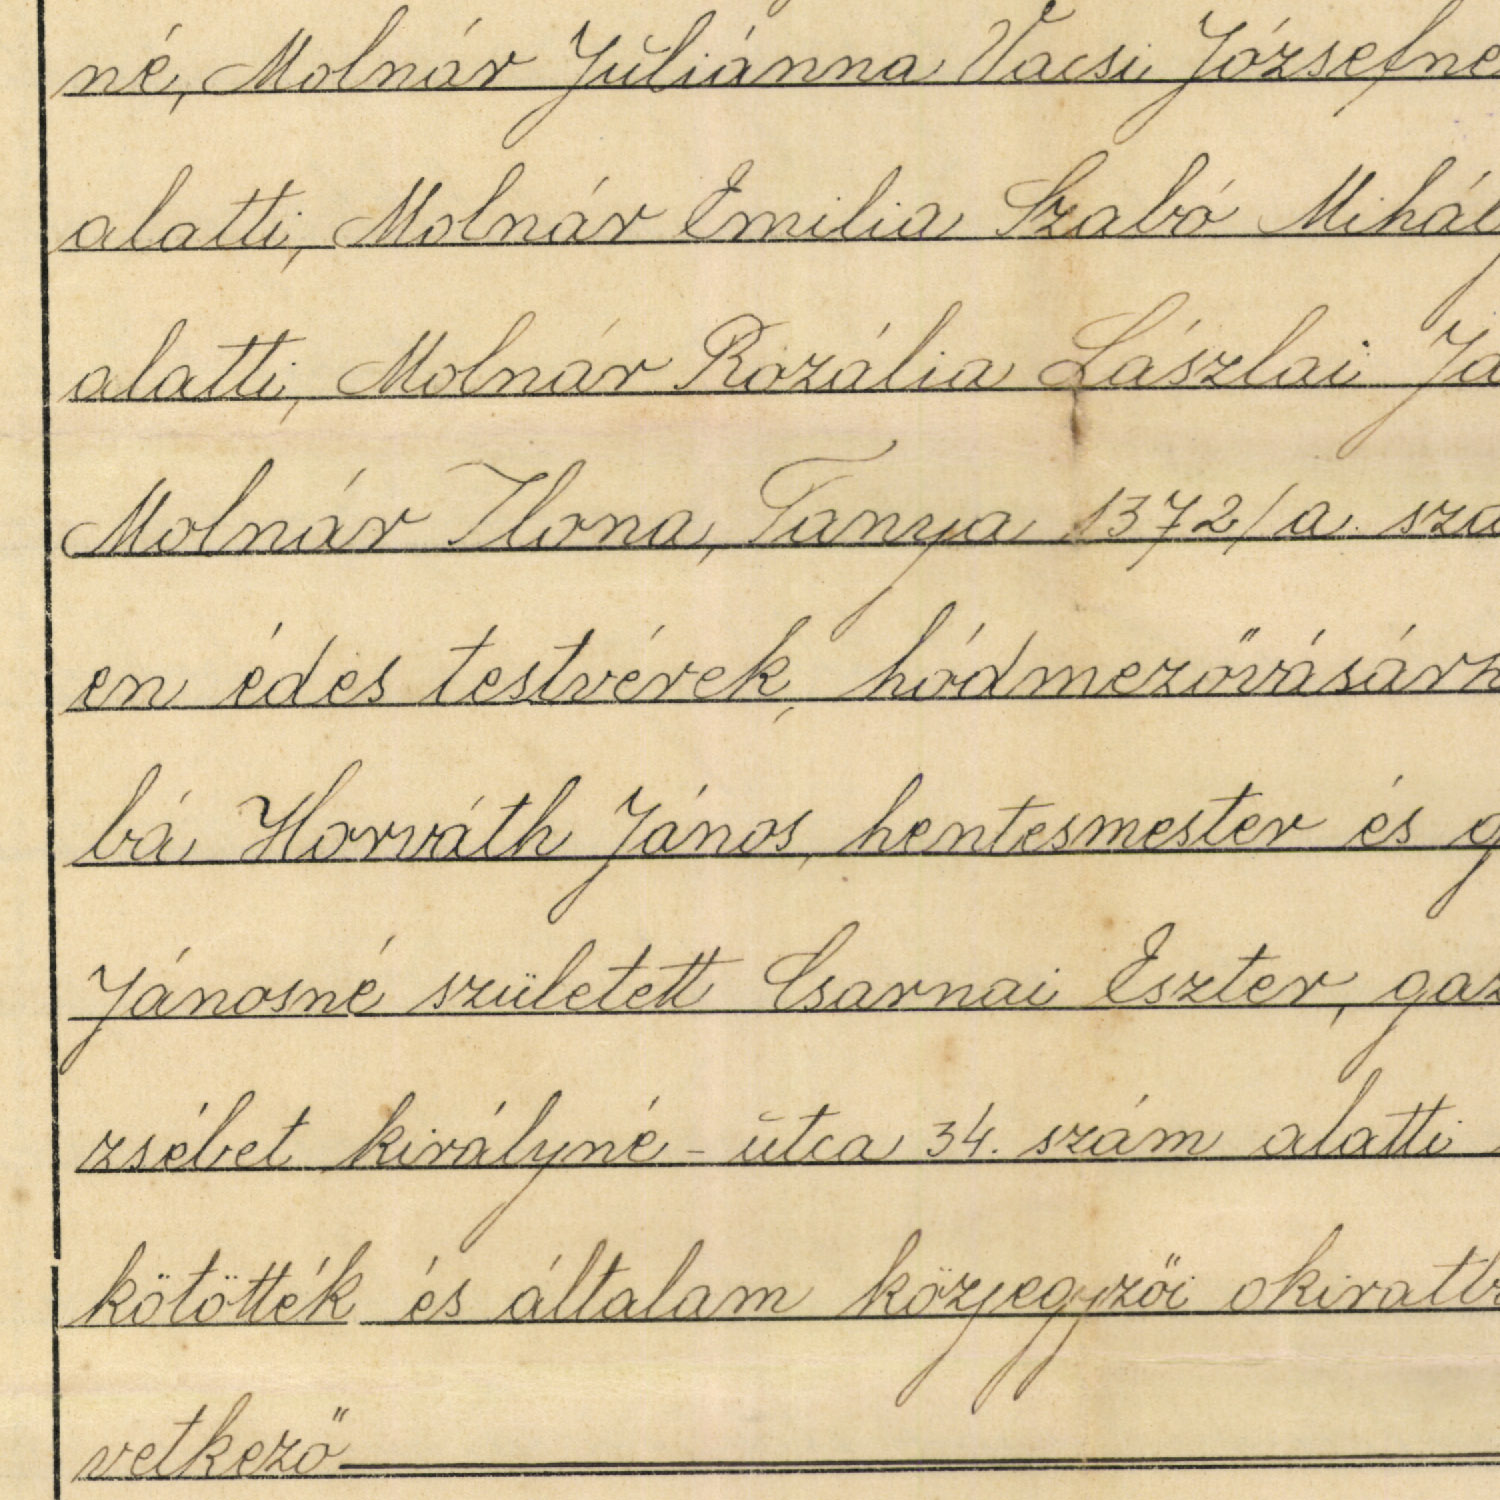 né, Molnár Júliánna Vacsi Józsefné
alatti, Molnár Emilia Szabó Mihál
alatti, Molnár Rozália Lászlai Já
Molnár Ilona, Tanya 1372/a. szá
en édes testvérek, hódmezővásárh
bá Horváth János, hentesmester és g
Jánosné született Csarnai Eszter, gaz
zsébet királyné - utca 34. szám alatti
kötötték és általam közjegyzői okiratb
vetkező